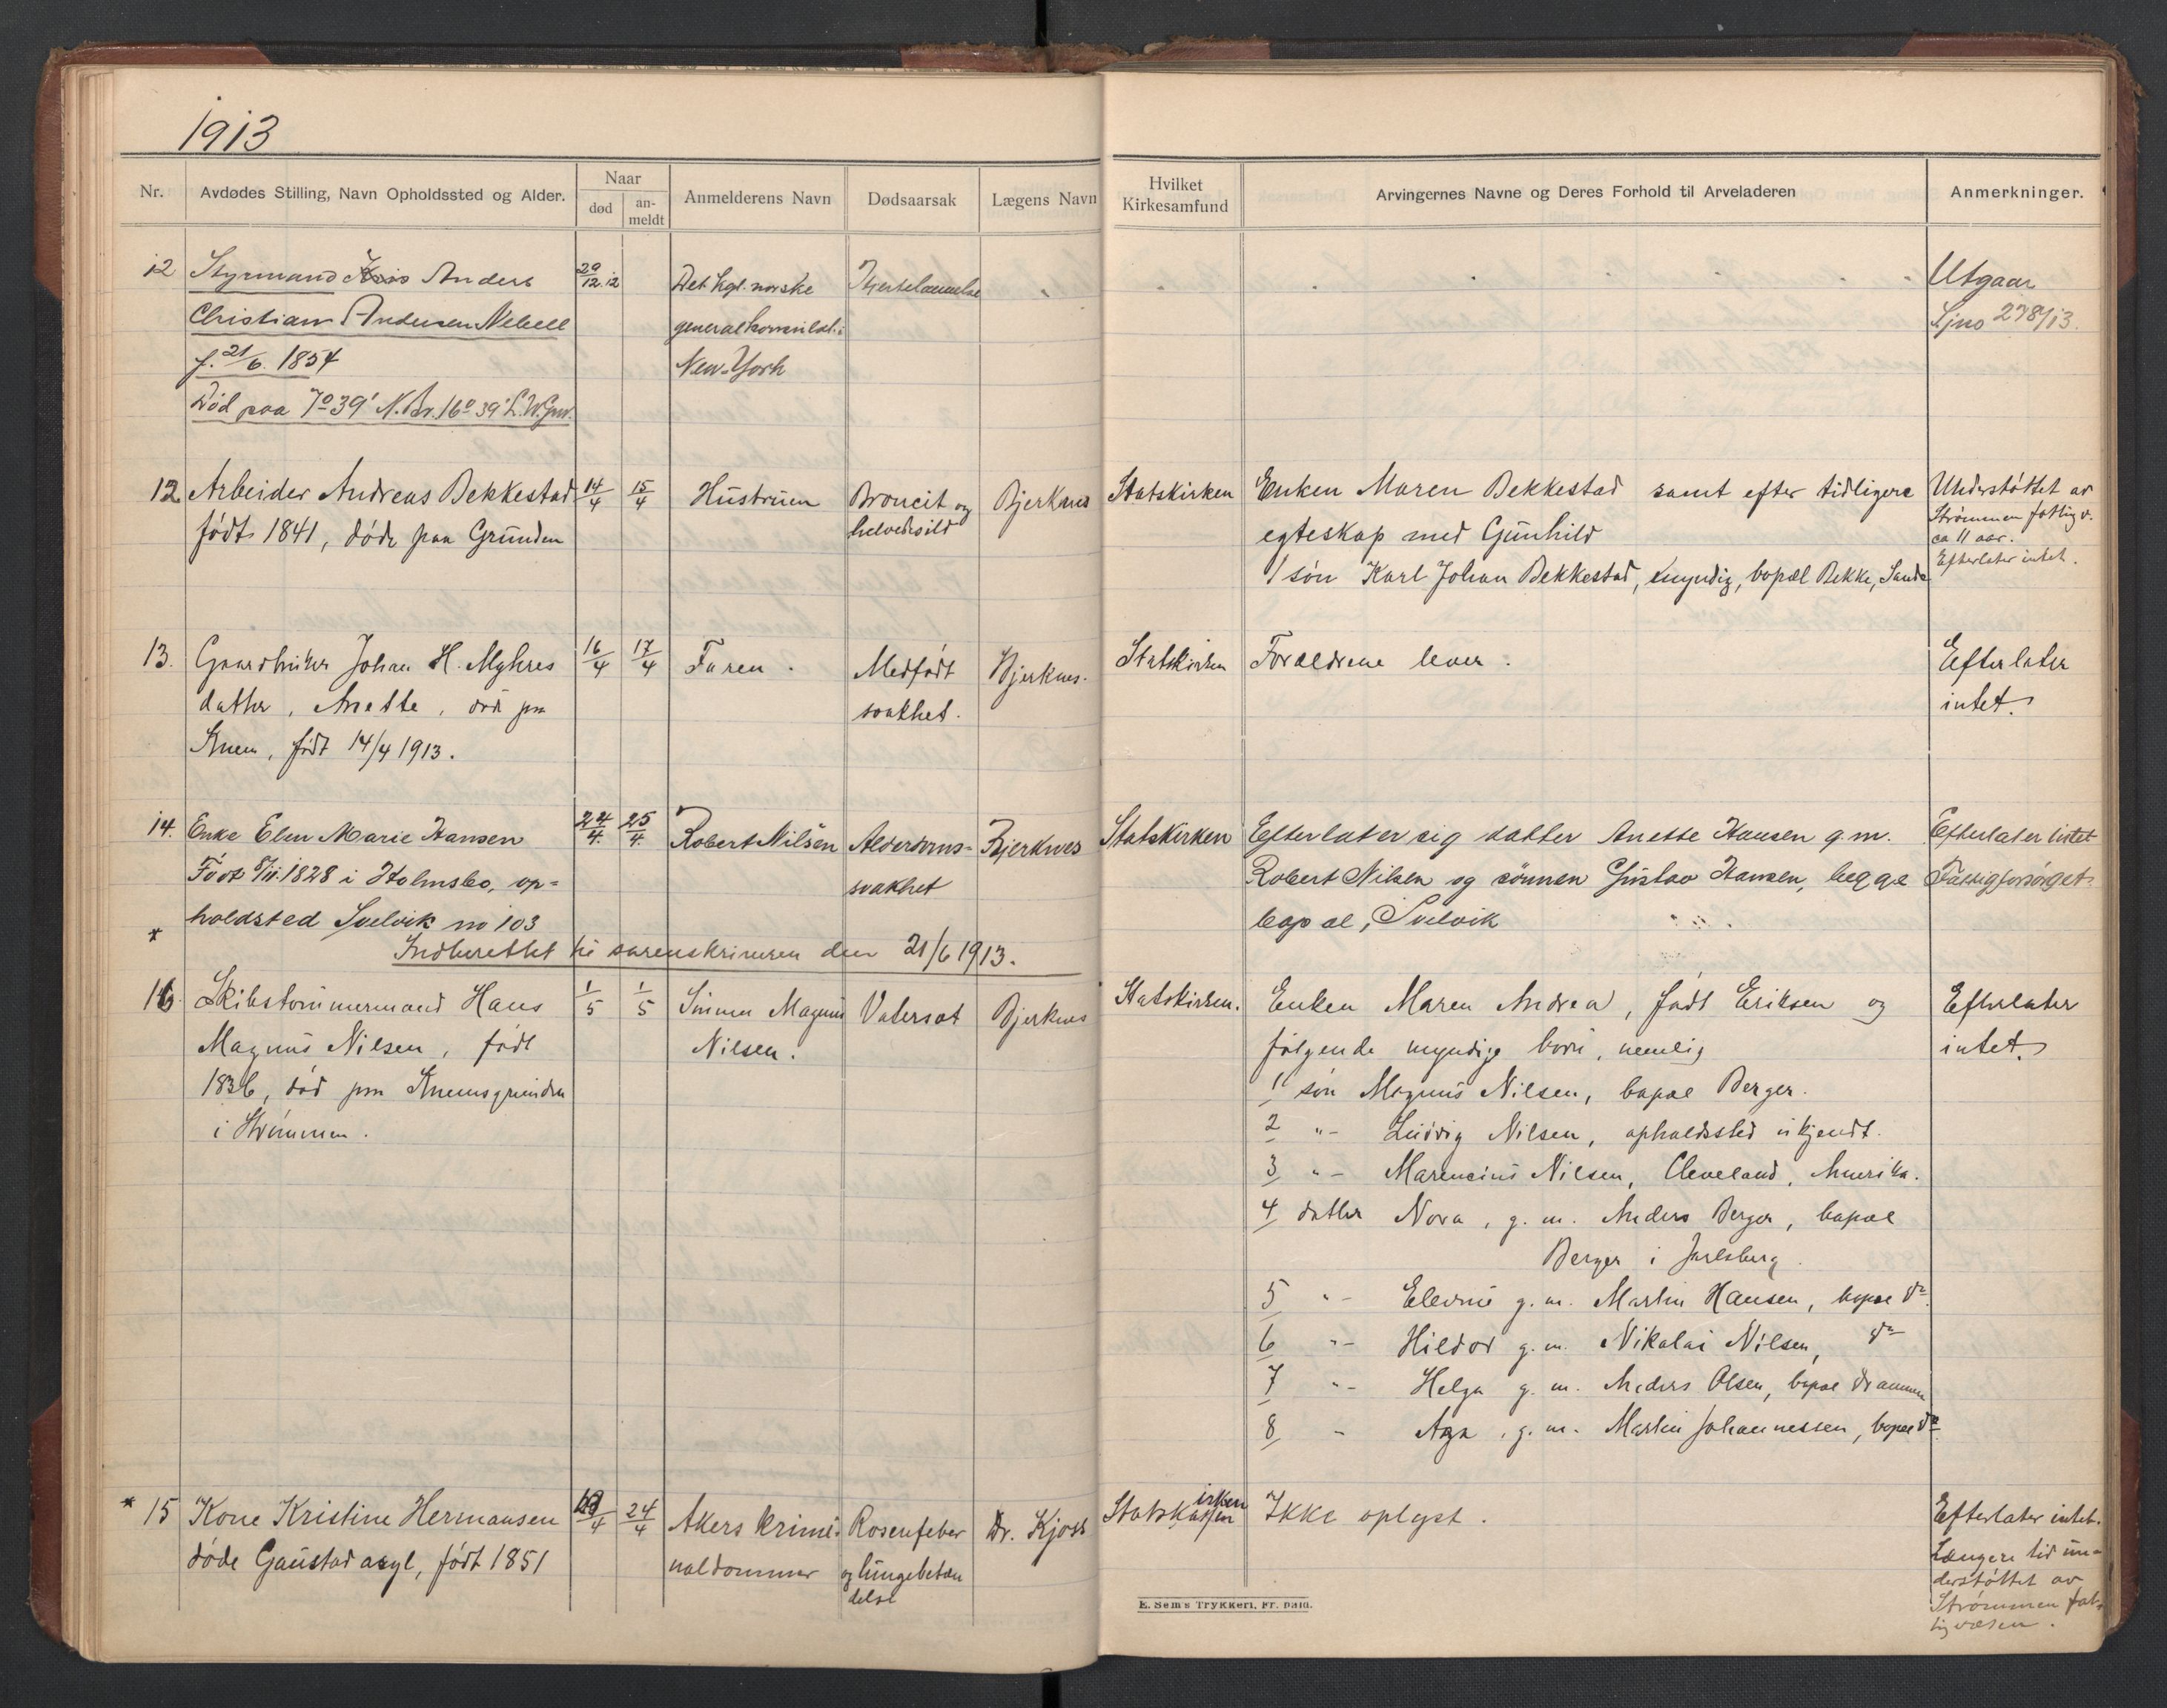 1913
Nr.
Avdødes Stilling, Navn Opholdssted og Alder.
Naar
død
an-
meldt
Anmelderens Navn
Dødsaarsak
Lægens Navn
Hvilket
Kirkesamfund
Arvingernes Navne og Deres Forhold til Arveladeren
Anmerkninger.
12 Styrmand Anders
Christian Andersen Nebell
f. 21/6. 1854
Død paa 7° 39' N. Br. 16° 39' L. W. Grw.
29/12.12
Det kgl. norske
generalkonsulat i
New-York
Hjertelammelse
Utgaar
Ljno 278/13.
12. Arbeider Andreas Bekkestad
født 1841, døde paa Grunden
14/4
15/4
Hustruen
Broncit og
helvedsild
Bjerknes
Statskirken
Enken Maren Bekkestad samt efter tidligere
egteskap med Gunhild
1 søn Karl Johan Bekkestad, myndig, bopæl Bekke, Sande
Understøttet av
Strømmen fattigv.
ca 11 aar.
Efterlater intet.
13. Gaardbruker Johan H. Myhres
datter, Anette, død paa
Knem, født 14/4 1913.
16/4
17/4
Faren.
Medfødt
svakhet.
Bjerknes.
Statskirken
Forældrene lever.
Efterlater
intet.
14. Enke Elen Marie Hansen
Født 8/11. 1828 i Holmsbo, op=
holdsted Svelvik no 103
24/4.
25/4.
Robert Nilsen
Alderdoms-
svakhet
Bjerknes
Statskirken
Efterlater sig datter Anette Hansen g.m.
Robert Nilsen og sønnen Gustav Hansen, begge
bopæl, Svelvik
Efterlater intet
Fattigforsørget.
* Indberettet til sorenskriveren den 21/6 1913.
16. Skibstømmermand Hans
Magnus Nilsen, født
1836, død paa Knemsgrunden
i Strømmen.
1/5
1/5
Sønnen Magnus
Nilsen.
Vatersot
Bjerknes
Statskirken.
Enken Maren Andrea, født Eriksen og
følgende myndige børn, nemlig
1 søn Magnus Nilsen, bopæl Berger.
2 "- Ludvig Nilsen, opholdssted ukjendt.
3 "- Marencius Nilsen, Cleveland, Amerika.
4 datter Nora, g. m. Anders Berger, bopæl
Berger i Jarlsberg.
5 "- g. m. Martin Hansen, bopæl do
6 "- Hildor g. m. Nikolai Nilsen, do
7 "- Helga g. m. Anders Olsen, bopæl Drammen
8 - Aga, g. m. Martin Johannessen, bopæl do
Efterlater
intet.
* 15 Kone Kristine Hermansen
døde Gaustad asyl, født 1851
24/4
Akers krimi-
naldommer
Rosenfeber
og lungebetæn
delse
Dr. Kjoss
Statskirken
Ikke oplyst.
Efterlater intet.
Længere tid un-
derstøttet av
Strømmen fat-
tigvæsen.
E. Sem's Trykkeri, Fr.hald.